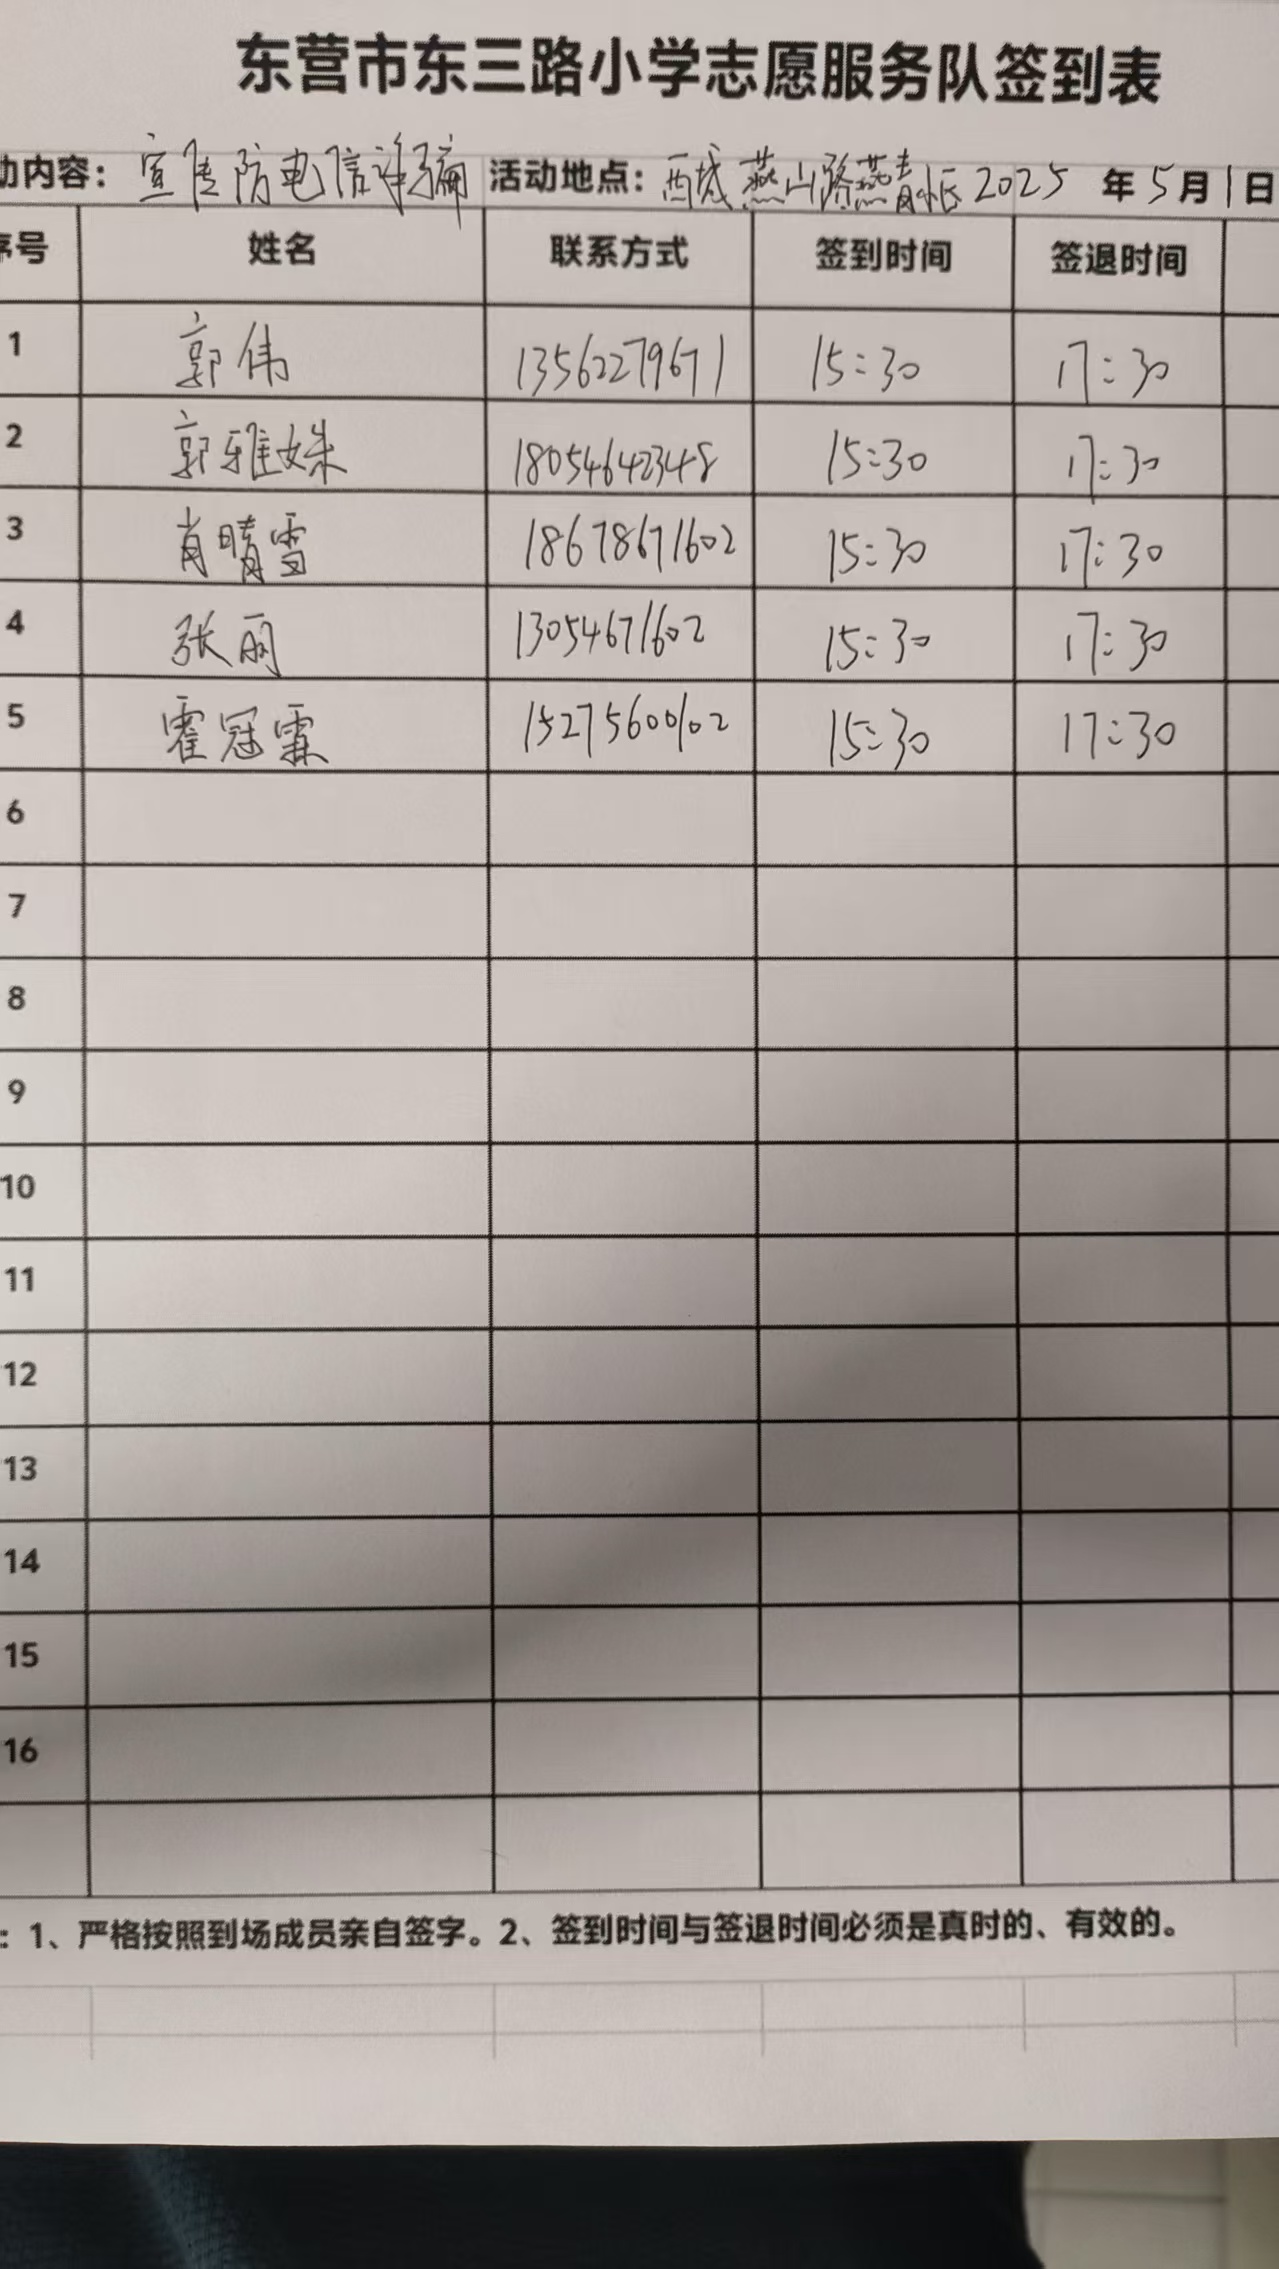 东营市东三路小学志愿服务队签到表
动内容：宣传防电信诈骗 活动地点：西城燕山路燕青小区 2025 年 5 月 1 日
序号 姓名 联系方式 签到时间 签退时间
1 郭伟 13562279671 15:30 17:30
2 郭雅姝 18054642348 15:30 17:30
3 肖晴雪 18678671602 15:30 17:30
4 张丽 13054671602 15:30 17:30
5 霍冠霖 15275600102 15:30 17:30
6
7
8
9
10
11
12
13
14
15
16
：1、严格按照到场成员亲自签字。2、签到时间与签退时间必须是真时的、有效的。